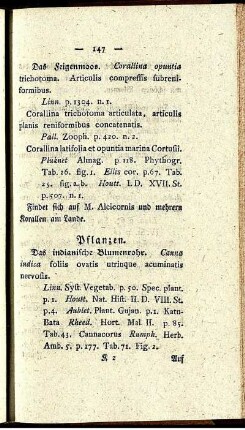 — 147 —
Das Feigenmoos. Corallina opuntia
trichotoma. Articulis compressis subreni-
formibus.
Linn. p. 1304. n. 1.
Corallina trichotoma articulata, articulis
planis reniformibus concatenatis.
Pall. Zooph. p. 420. n. 2.
Corallina latifolia et opuntia marina Cortusii.
Pluknet Almag. p. 118. Phythogr.
Tab. 16. fig. 1. Ellis cor. p. 67. Tab.
25. fig. a. b. Houtt. I. D. XVII. St.
p. 507. n. 1.
Findet sich auf M. Alcicornis und mehrern
Korallen am Lande.
Pflanzen.
Das indianische Blumenrohr. Canna
indica foliis ovatis utrinque acuminatis
nervosis.
Linn. Syst. Vegetab. p. 50. Spec. plant.
p. 1. Houtt. Nat. Hist. II. D. VIII. St.
p. 4. Aublet. Plant. Gujan. p. 1. Katu-
Bata Rheed. Hort. Mal. II. p. 85.
Tab. 43. Cannacorus Rumph. Herb.
Amb. 5. p. 177. Tab. 71. Fig. 2.
K 2 Auf